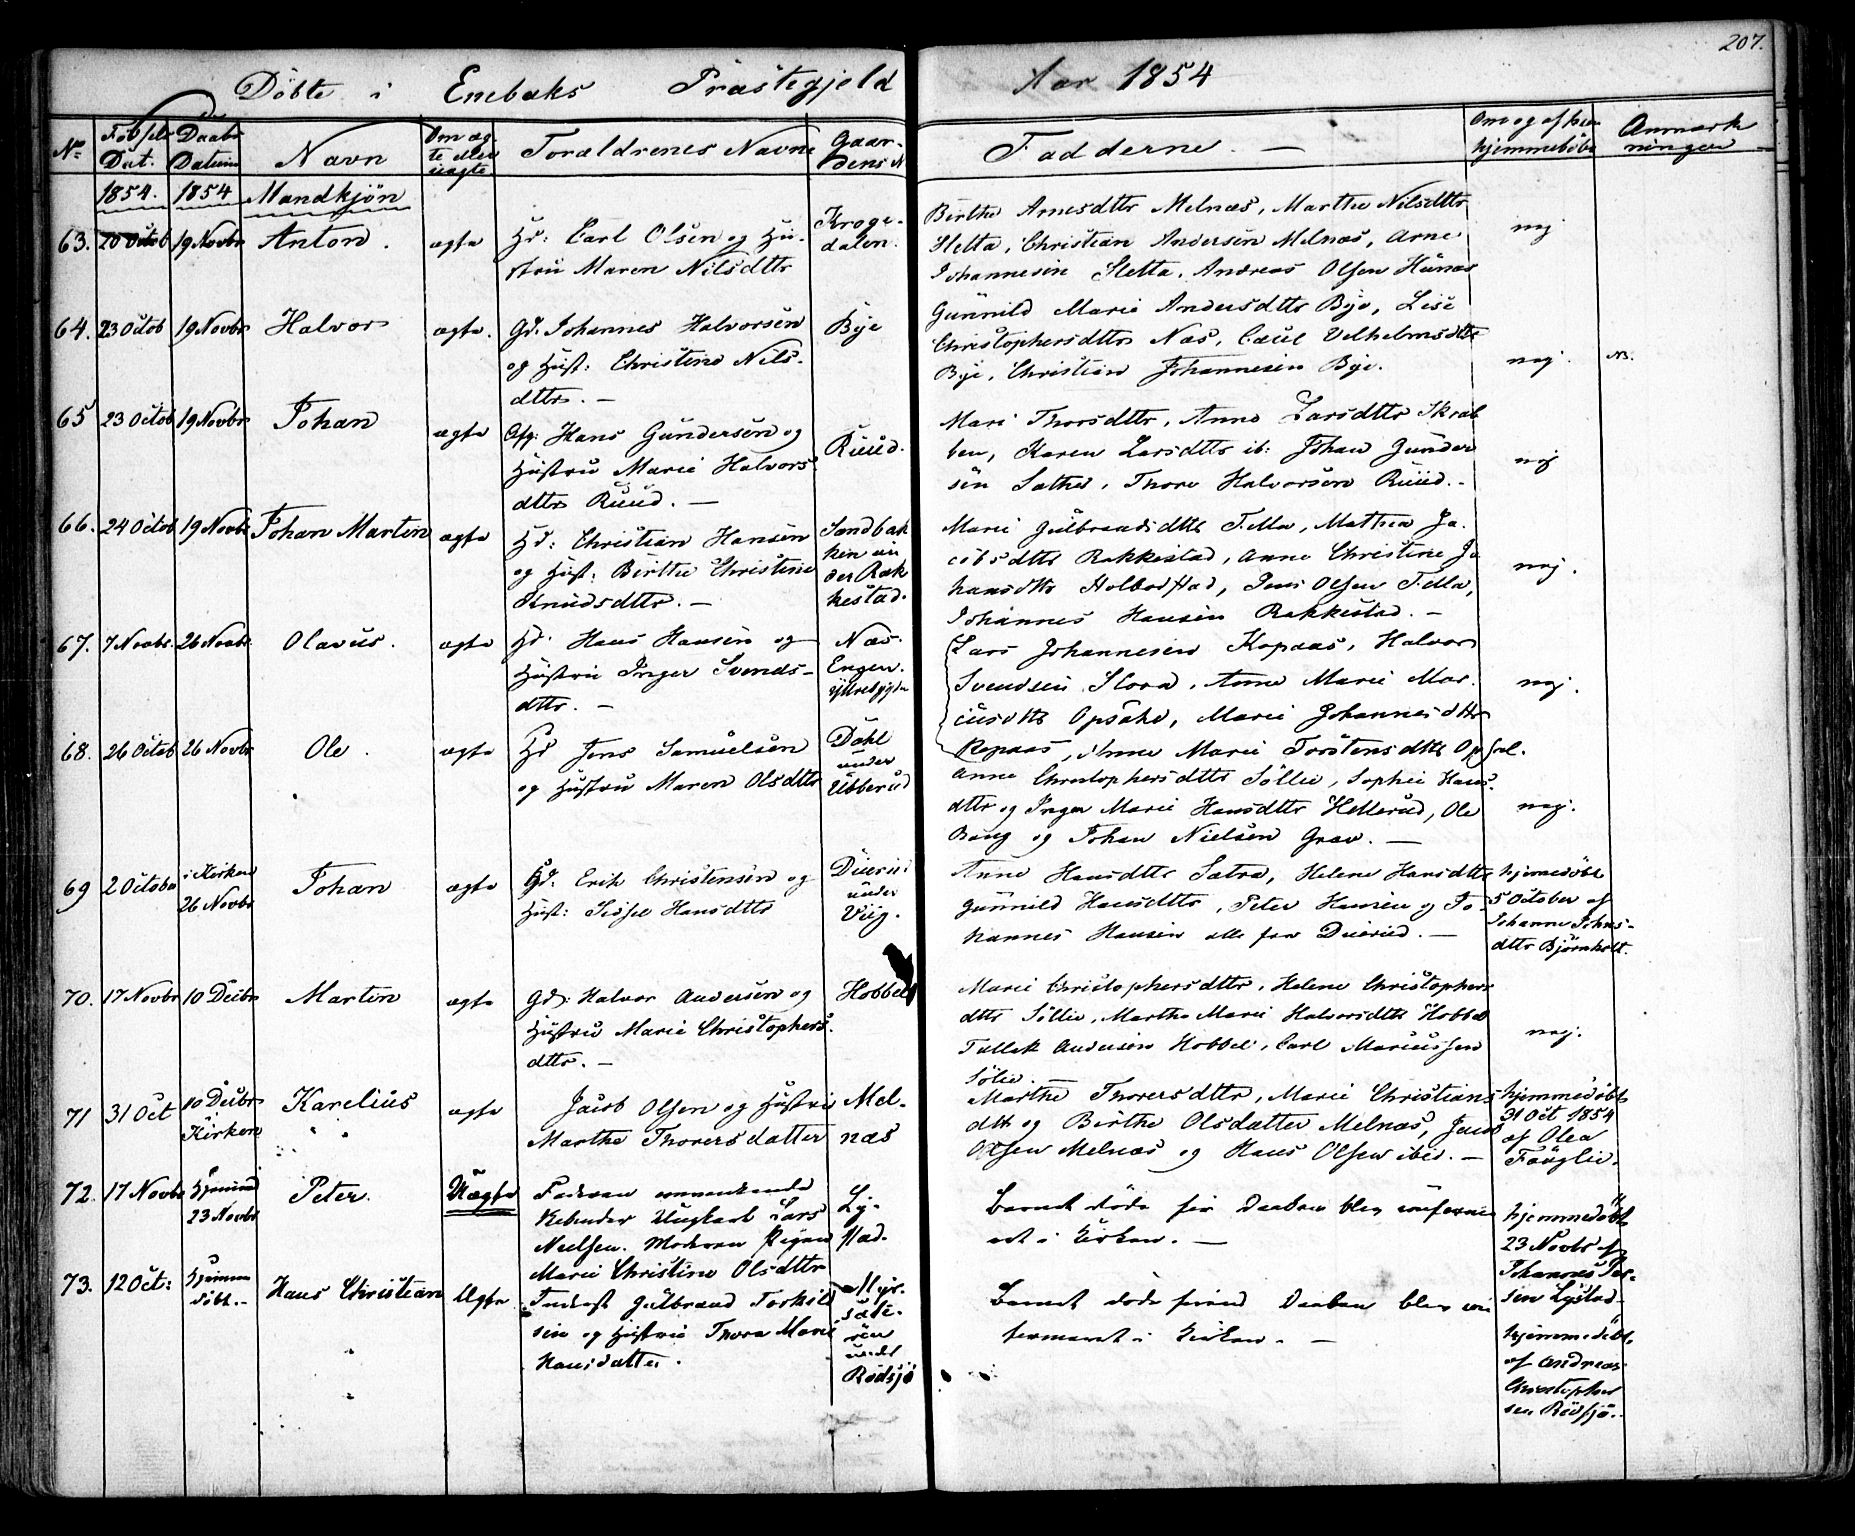 207.
Döbte i Enebaks Præstegjeld Aar 1854
No Födsels Dat. Daabs Datum Navn Om ægte eller uægte Forældrenes Navne Gaardens N Fadderne. — Om og af hvem hjemmedöbt Anmærkninger
1854. 1854 Mandkjön
63. 20 Octob 19 Novbr Anton. ægte Hd: Carl Olsen og Hu-
stru Maren Nilsdttr
Kroge-
dalen.
Birthe Arnesdttr Melnæs, Marthe Nilsdttr
Sletta, Christian Andersen Melnæs, Arne
Johannesen Sletta, Andreas Olsen
nej
64. 23 Octob 19 Novbr Halvor ægte. Gd. Johannes Halvorsen
og Hust: Christine Nils-
dttr. —
Bye
Gunnild Marie Andersdttr Bye, Lise
Christophersdttr Næs, Vilhelmsdttr
Bye, Christian Johannesen Bye.
nej. NB.
65 23 Octob 19 Novbr Johan ægte Hans Gundersen og
Hustru Marie Halvors
dttr Ruud. —
Ruud.
Mari Thorsdttr, Anne Larsdttr Skrab
ben, Karen Larsdttr ib: Johan Gunder
sen Sæther, Thore Halvorsen Ruud. -
nej
66. 24 Octob 19 Novbr Johan Martin ægte Hd: Christian Hansen
og Hust: Birthe Christine
Knudsdttr. —
Sandbak
ken un
der Rak
kestad.
Marie Gulbrandsdttr Tella, Mathea Ja-
cobsdttr Rakkestad, Anne Christine Jo
hansdttr, Jens Olsen Tella,
Johannes Hansen Rakkestad. —
nej.
67. 7 Novbr. 26 Novbr. Olavus. ægte Hd: Hans Hansen og
Hustru Inger Svends-
dttr. —
Næs-
Engen.
Lars Johannesen Kopaas, Halvor
Svendsen Stora, Anne Marie Mar-
iusdttr Opsahl, Marie Johannesdttr
Kopaas, Anne Marie Torstensdttr Opsal.
nej.
68. 26 Octob 26 Novbr Ole. ægte Hd Jens Samuelsen
og Hustru Maren Olsdttr
Dahl
under
Ubberud
Anne Christophersdttr Söllie, Sophie Hans-
dttr og Inger Marie Hansdttr Hellerud, Ole
Bang og Johan Nielsen Grav. —
nej.
69 2 October i Kirken
26 Novbr Johan ægte Gd. Erik Christensen og
Hust: Sissel Hansdttr
Duerud
under
Viig.
Anne Hansdttr Sætra, Helene Hansdttr
Gunnild Hansdttr, Peter Hansen og Jo-
hannes Hansen alle fra Duerud. —
hjemmedöbt
5 October af
Johanne Johns-
dttr Björnholt.
70. 17 Novbr 10 Decbr Martin ægte Gd: Halvor Andersen og
Hustru Marie Christophers-
dttr. —
Hobbel
Marie Christophersdttr, Helene Christophers
dttr Söllie, Marthe Marie Halvorsdttr Hobbel
Tollef Andersen Hobbel, Carl Mariussen
Sölie. —
nej.
71 31 Oct 10 Decbr
Kirken Karelius ægte Jacob Olsen og Hustru
Marthe Thoresdatter
Mel-
næs
Marthe Thoresdttr, Marie Christians
dtt og Birthe Olsdatter Melnæs, Jacob
Olsen Melnæs og Hans Olsen ibid. —
hjemmedöbt
31 Oct 1854
af Olea
Fauglie.
72. 17 Novbr Hjemme
23 Novbr Peter. Uægte Faderen
Ungkarl Lars
Nielsen. Moderen Pigen
Marie Christine Olsdttr
Ly-
stad.
Barnet döde för Daaben blev confirme
ret i Kirken. —
hjemmedöbt
23 Novbr af
Johannes Pe-
sen Lystad
73. 12 Oct: Hjemme
döbt. Hans Christian Ægte Inderst Gulbrand Torkild
sen og Hustrue Thora Marie
Hansdatter.
under
Rödsjö
Barnet döde förend Daaben blev con
firmeret i Kirken. —
hjemmedöbt,
af Andreas
Christopher
sen Rödsjö.